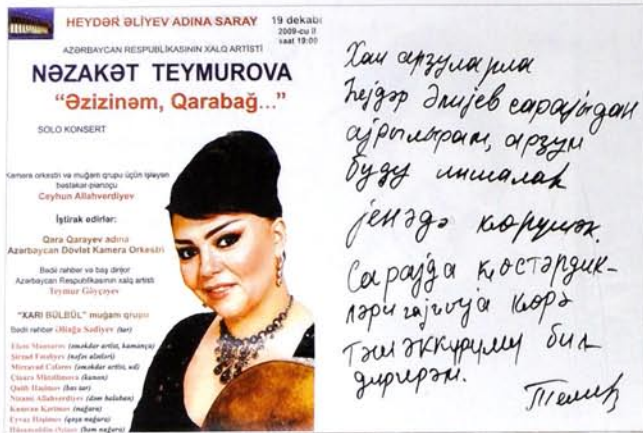 HEYDƏR ƏLİYEV ADINA SARAY
19 dekabr
2009-cu il
saat 19:00
AZƏRBAYCAN RESPUBLİKASININ XALQ ARTİSTİ
NƏZAKƏT TEYMUROVA
“Əzizinəm, Qarabağ...”
SOLO KONSERT
Kamera orkestri və muğam qrupu üçün işləyən
bəstəkar-pianoçu
Ceyhun Allahverdiyev
İştirak edirlər:
Qara Qarayev adına
Azərbaycan Dövlət Kamera Orkestri
Bədii rəhbər və baş dirijor
Azərbaycan Respublikasının xalq artisti
Teymur Göyçayev
“XARI BÜLBÜL” muğam qrupu
Bədii rəhbər Əliağa Sədiyev (tar)
(əməkdar artist, kamança)
(nəfəs alətləri)
(əməkdar artist, ud)
(kanon)
(bas tar)
Nizami Allahverdiyev (dəm balaban)
Kamran Kərimov (nağara)
Eyvaz Haşımov (qoşa nağara)
(bəm nağara)
Хаш арзуларла
Һејдәр Әлијев сарајыдан
ајрылырам, арзум
буду
јенәдә көрүшәк.
Сарајда ҝөстәрдик-
ләри гајғыја көрә
тәшәккүрүмү бил
дирирәм.